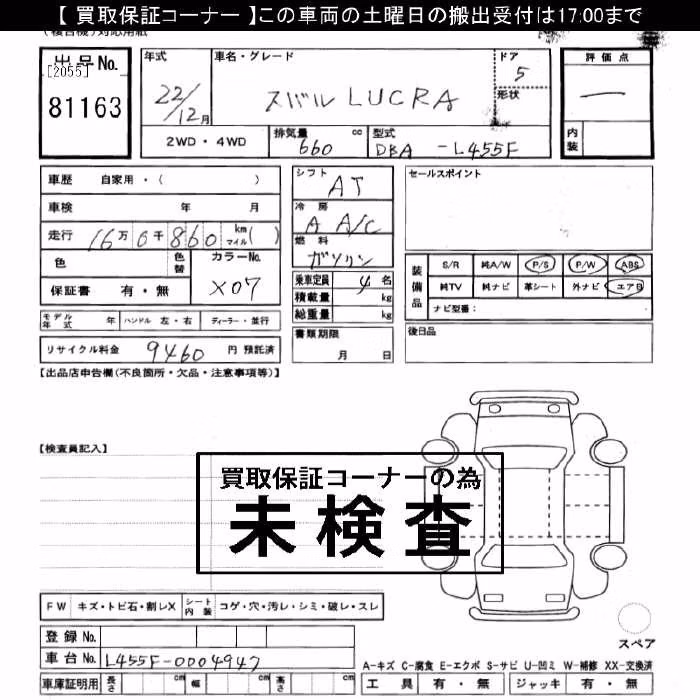 【 買取保証コーナー 】この車両の土曜日の搬出受付は17:00まで
出品No.
[2055]
81163
年式
22/12月
車名・グレード
スバル LUCRA
ドア
5
形状
評価点
—
内装
2WD・4WD
排気量 cc
660
型式
DBA -L455F
車歴 自家用・( )
車検 年 月
走行 16万6千860 km マイル( )
色 色替
カラーNo.
X07
保証書 有・無
モデル年式 年 ハンドル 左・右 ディーラー・並行
リサイクル料金 9460 円 預託済
シフト
AT
冷房
A A/C
燃料
ガソリン
乗車定員 4 名
積載量 kg
総重量 kg
書類期限
月 日
セールスポイント
装備品
S/R 純A/W P/S P/W ABS
純TV 純ナビ 革シート 外ナビ エアB
ナビ型番:
後日品
【出品店申告欄(不良箇所・欠品・注意事項等)】
【検査員記入】
買取保証コーナーの為
未検査
FW キズ・トビ石・割レX シート内装 コゲ・穴・汚レ・シミ・破レ・スレ
登録No.
車台No. L455F-0004947
車庫証明用 長さ cm 幅 cm 高さ cm
スペア
A-キズ C-腐食 E-エクボ S-サビ U-凹ミ W-補修 XX-交換済
工具 有・無 ジャッキ 有・無